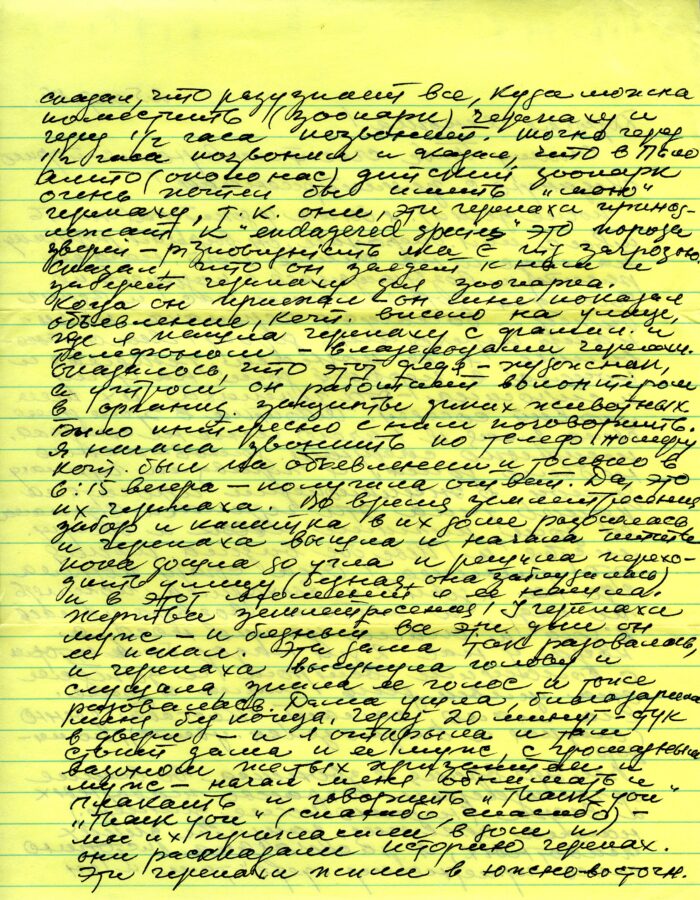 сказал, что разузнает все, куда можна
поместить (зоопарк) черепаху и
через 1/2 часа позвонит. Точно через
1/2 часа позвонил и сказал, что в Пало
Алто (около нас) дитский зоопарк
очень хотел бы иметь "мою"
черепаху, т.к. они, эти черепахи принад-
лежат к "endagered species" это порода
зверей – різновидність яка є під загрозою,
сказал, что он заедет к нам и
заберет черепаху для зоопарка.
Когда он приехал – он мне показал
объевление, кот. висело на улице,
где я нашла черепаху с фамил. и
телефоном – владельцами черепахи.
Оказалось, что этот дядя – художник,
а утром он работает волонтером
в организ. защиты диких животных
Было интересно с ним поговорить.
Я начала звонить по телефо. номеру
кот. был на объевлении и только в
6:15 вечера – получила ответ. Да, это
их черепаха. Во время землетрясения
забор и калитка в их доме развалилась
и черепаха вышла и начала
пока дошла до угла и решила перехо-
дить улицу (бедная, она заблудилась)
и в этот момент я ее нашла.
Жертва землетресения! У черепахи
муж – и бедный все эти дни он
ее искал. Эта дама так радовалась,
и черепаха высунула голову и
слушала, знала ее голос и тоже
радовалась. Дама ушла, благодарила
меня без конца, через 20 минут – стук
в двери – и я открыла и там
стоит дама и ее муж, с громадным
вазоном желтых хризантем и
муж – начал меня обнимать и
плакать и говорить "Thank you"
"Thank you" (спасибо, спасибо) –
мы их пригласили в дом и
они рассказали историю черепах.
Эти черепахи жили в южно-восточн.